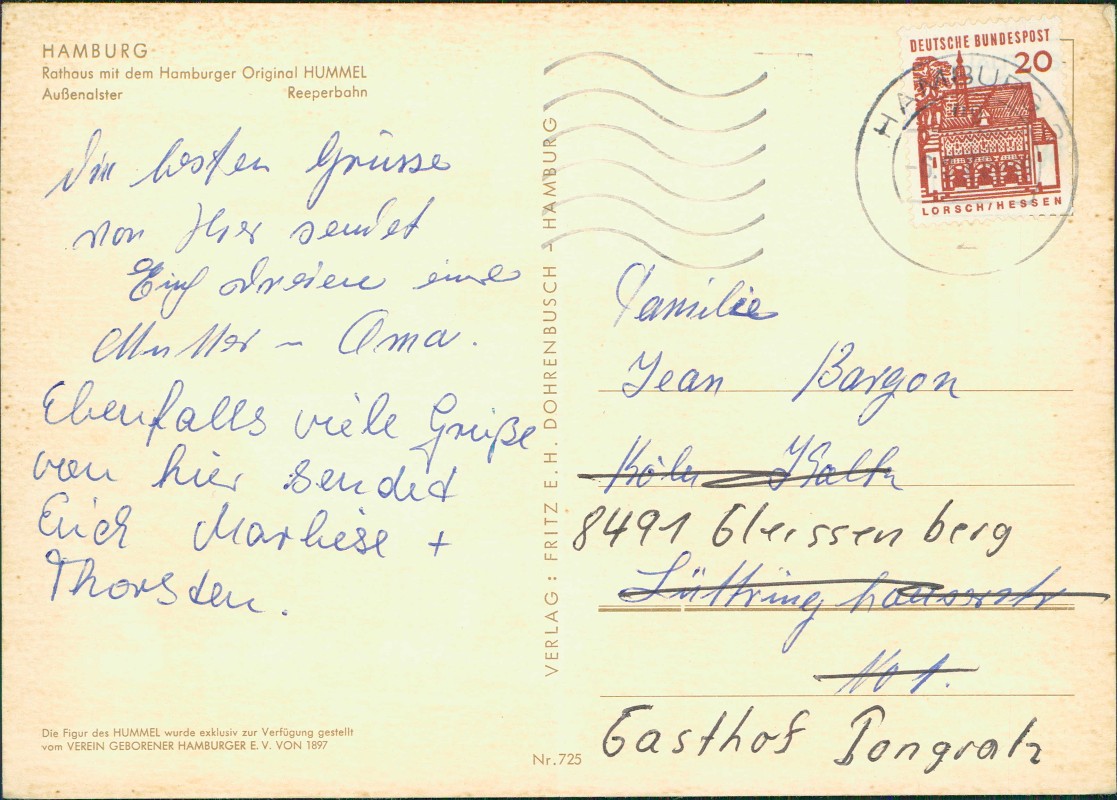 HAMBURG
Rathaus mit dem Hamburger Original HUMMEL
Außenalster Reeperbahn
Die besten Grüsse
von Hier sendet
Euch dreien eure
Mutter - Oma.
Ebenfalls viele Grüße
von hier sendet
Erich Marliese +
Thorsten.
Die Figur des HUMMEL wurde exklusiv zur Verfügung gestellt
vom VEREIN GEBORENER HAMBURGER E. V. VON 1897
VERLAG: FRITZ E. H. DOHRENBUSCH - HAMBURG
Nr. 725
DEUTSCHE BUNDESPOST
20
LORSCH/HESSEN
HAMBURG 2
Familie
Jean Bargon
Köln Kalk
8491 Gleissenberg
Lüttringhauserstr
No 1.
Gasthof Pongratz